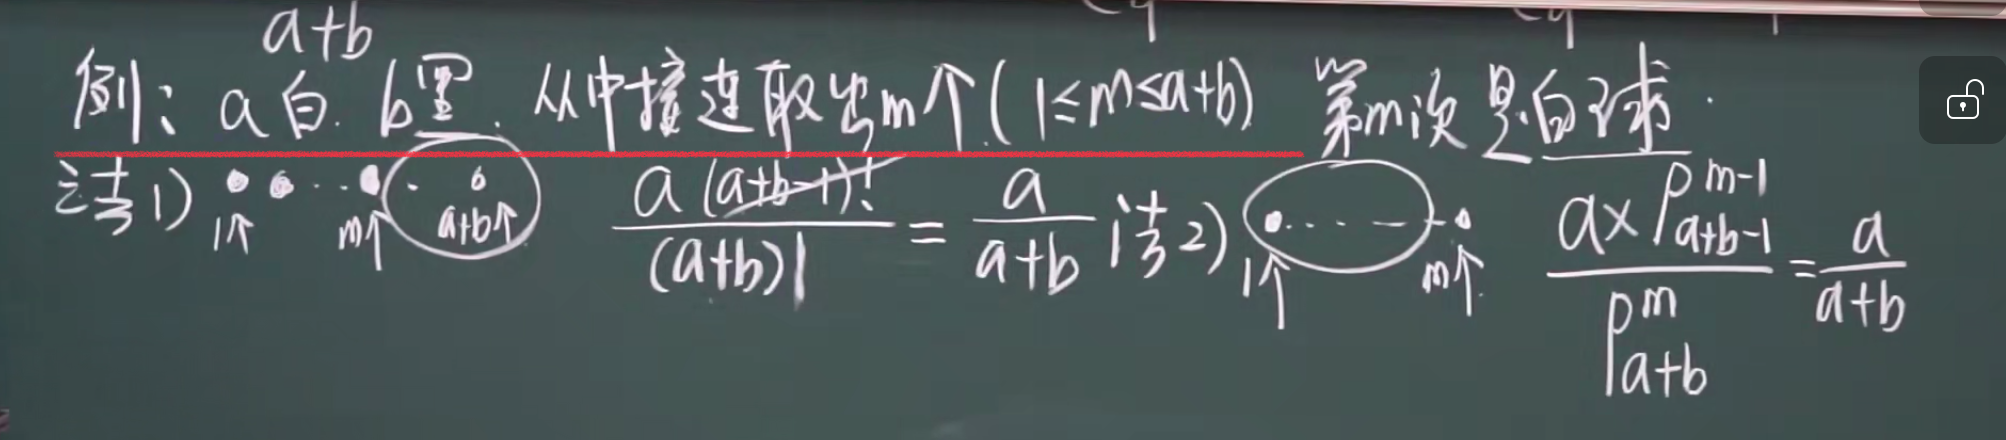 a+b
例: a白. b黑. 从中接连取出m个(1≤m≤a+b) 第m次是白球.
法1) 1个 m个 a+b个 a(a+b-1)!/(a+b)! = a/(a+b) 法2) 1个 m个 a×P_{a+b-1}^{m-1}/P_{a+b}^{m} = a/(a+b)